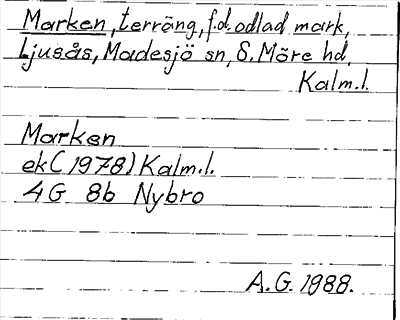 Marken, terräng, f.d. odlad mark,
Ljusås, Madesjö sn, S. Möre hd,
Kalm.l.
Marken
ek (1978) Kalm.l.
4G 8b Nybro
A.G. 1988.